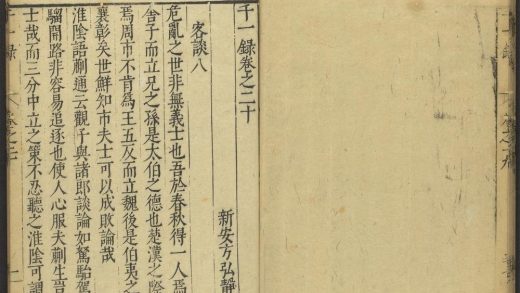 千一錄卷之二十
新安方弘靜
客談八
危亂之世非無義士也吾於春秋得一人焉
舍子而立兄之孫是太伯之德也楚漢之際
焉周市不肯為王五反而立魏後是伯夷之
襄彰矣世鮮知市夫士可以成敗論哉
淮陰語蒯通云觀子與諸郎談論如駑駘駕
騮開路非容易追逐也使人心服夫蒯生豈
士哉而三分中立之策不忍聽之淮陰可謂